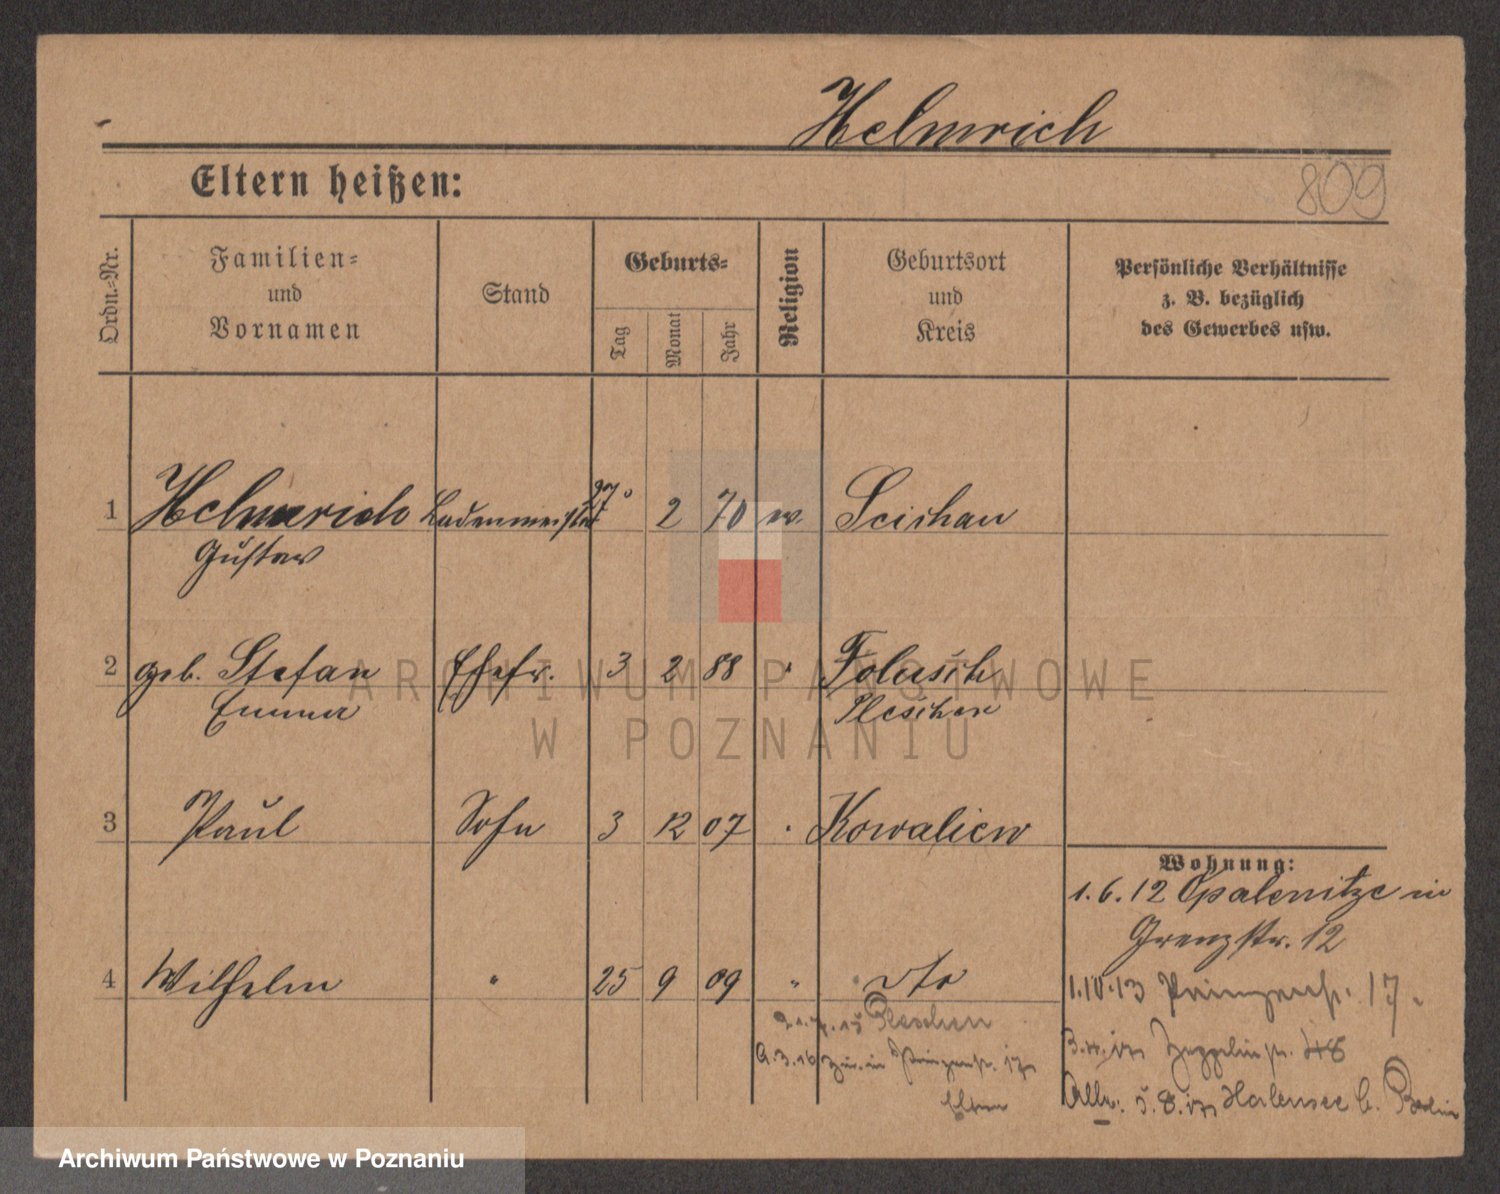 Helmrich
Eltern heißen:
809
Ordn.-Nr.
Familien-
und
Vornamen
Stand
Geburts-
Tag
Monat
Jahr
Religion
Geburtsort
und
Kreis
Persönliche Verhältnisse
z. B. bezüglich
des Gewerbes usw.
1 Helmrich Lademeister 27 2 70 ev. Scishau
Gustav
2 geb. Stefan Ehefr. 3 2 88 " Folusch
Emma Pleschen
3 Paul Sohn 3 12 07 " Kowaliew
Wohnung:
1.6.12 Opalenitza in
Grenzstr. 12
4 Wilhelm " 25 9 09 " dto
1.10.13 Prinzenstr. 17.
Pleschen
Zeppelinstr. 48
in Prinzenstr. 17
Eltern
Halensee b. Berlin
ARCHIWUM PAŃSTWOWE
W POZNANIU
Archiwum Państwowe w Poznaniu